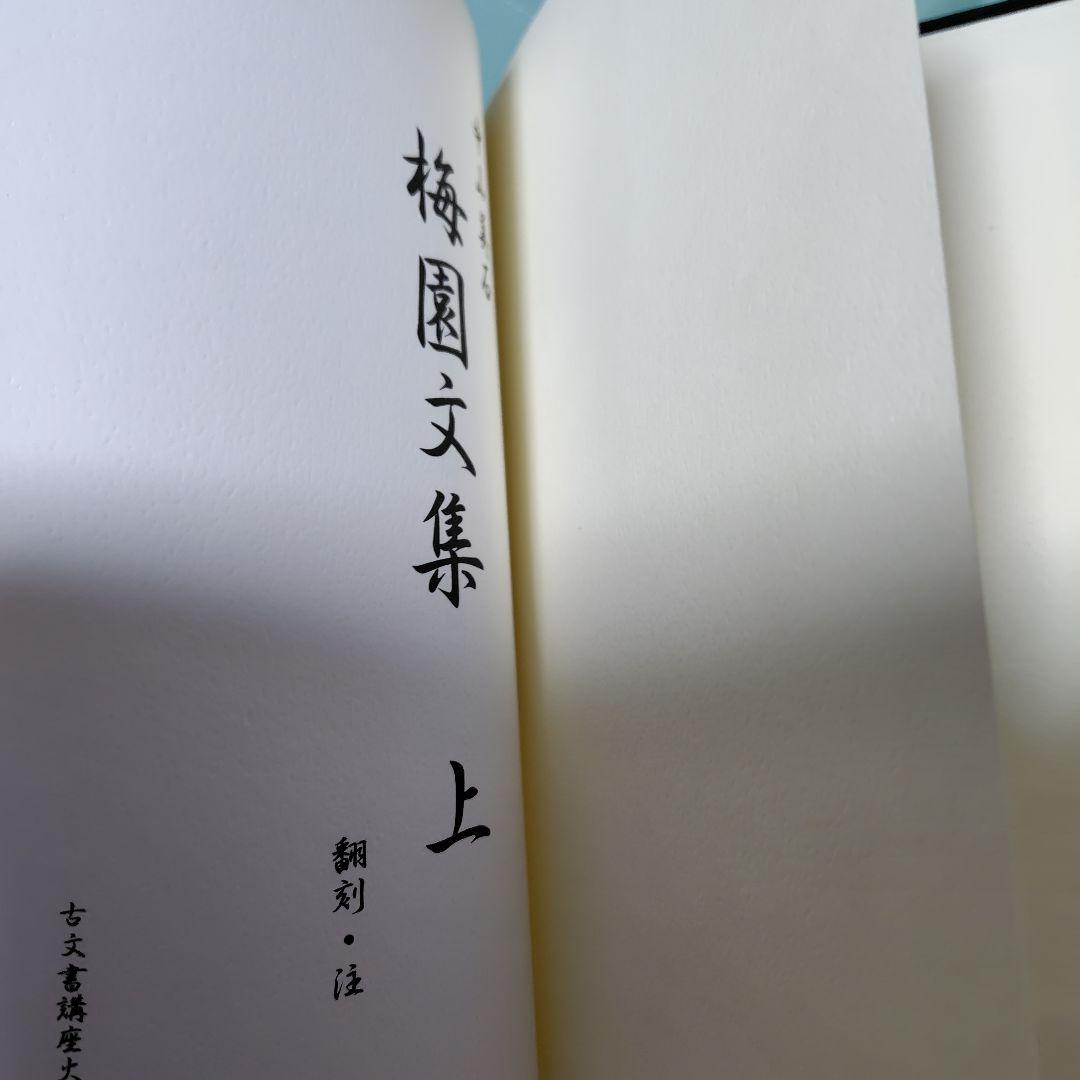 梅園文集 上
翻刻・注
古文書講座火